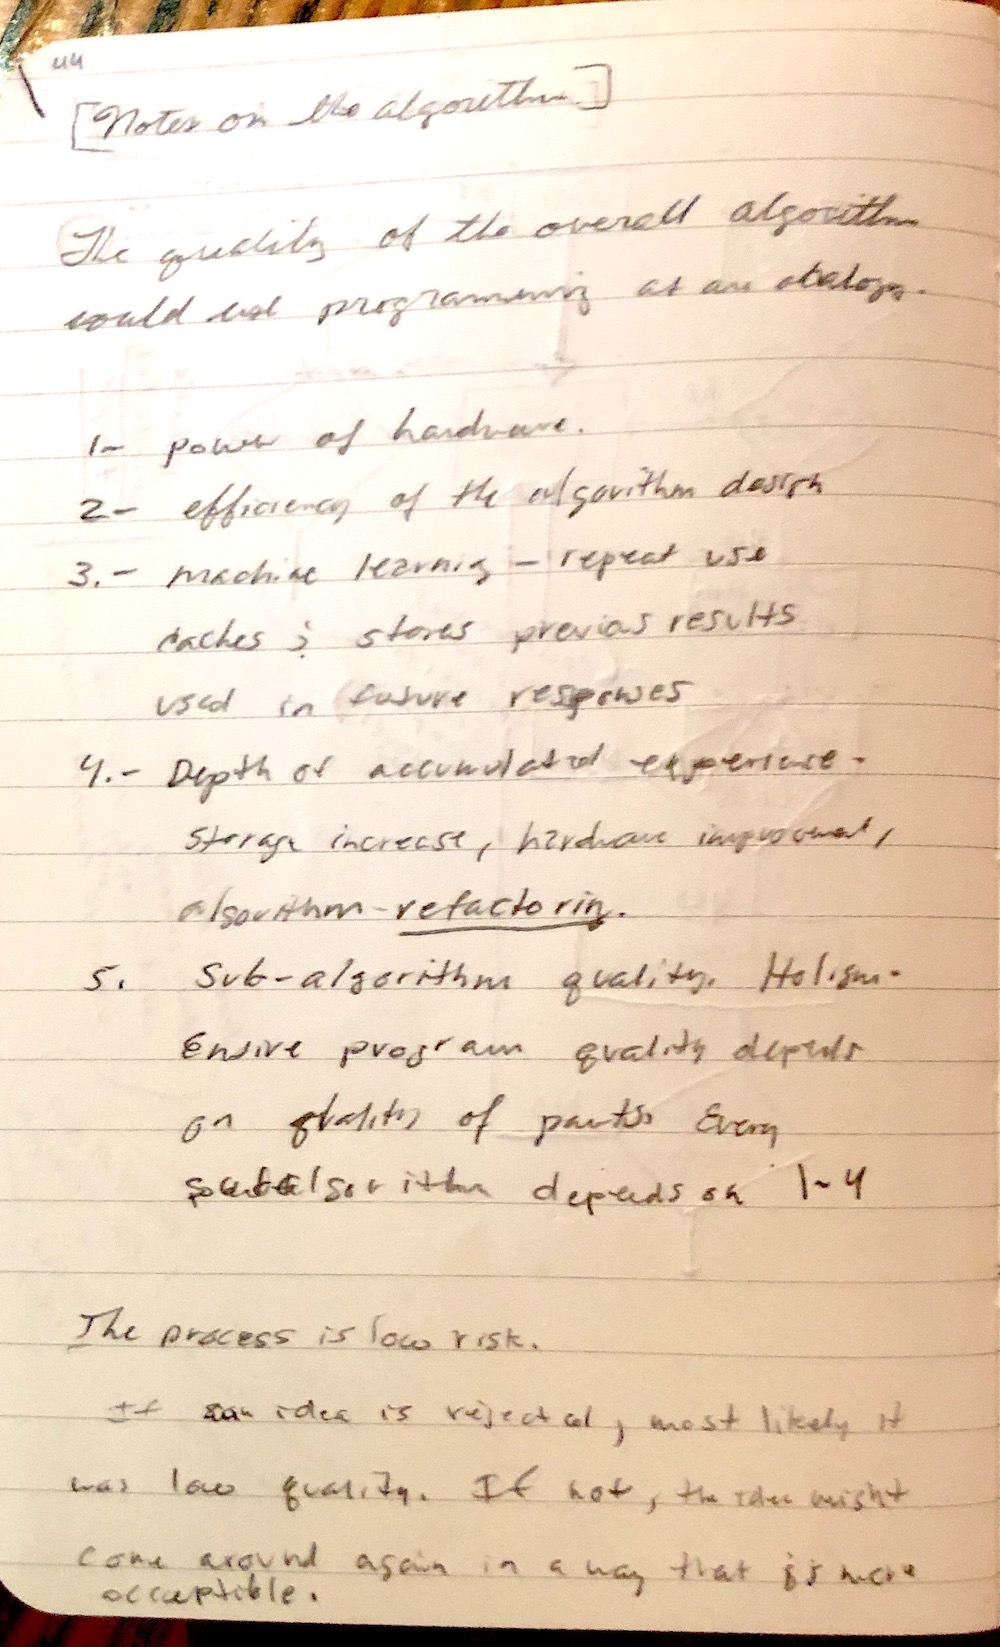 44
[Notes on the algorithm]
The quality of the overall algorithm
could use programming as an analogy.
1- power of hardware.
2- efficiency of the algorithm design
3.- machine learnig - repeat use
caches & stores previos results
used in future responses
4.- Depth of accumulated experience -
storage increase, hardware improvement,
algorithm-refactoring.
5. Sub-algorithm quality. Holism-
Entire program quality depends
on quality of parts. Every
subalgorithm depends on 1-4
The process is low risk.
If an idea is rejected, most likely it
was low quality. If not, the idea might
come around again in a way that is more
acceptible.